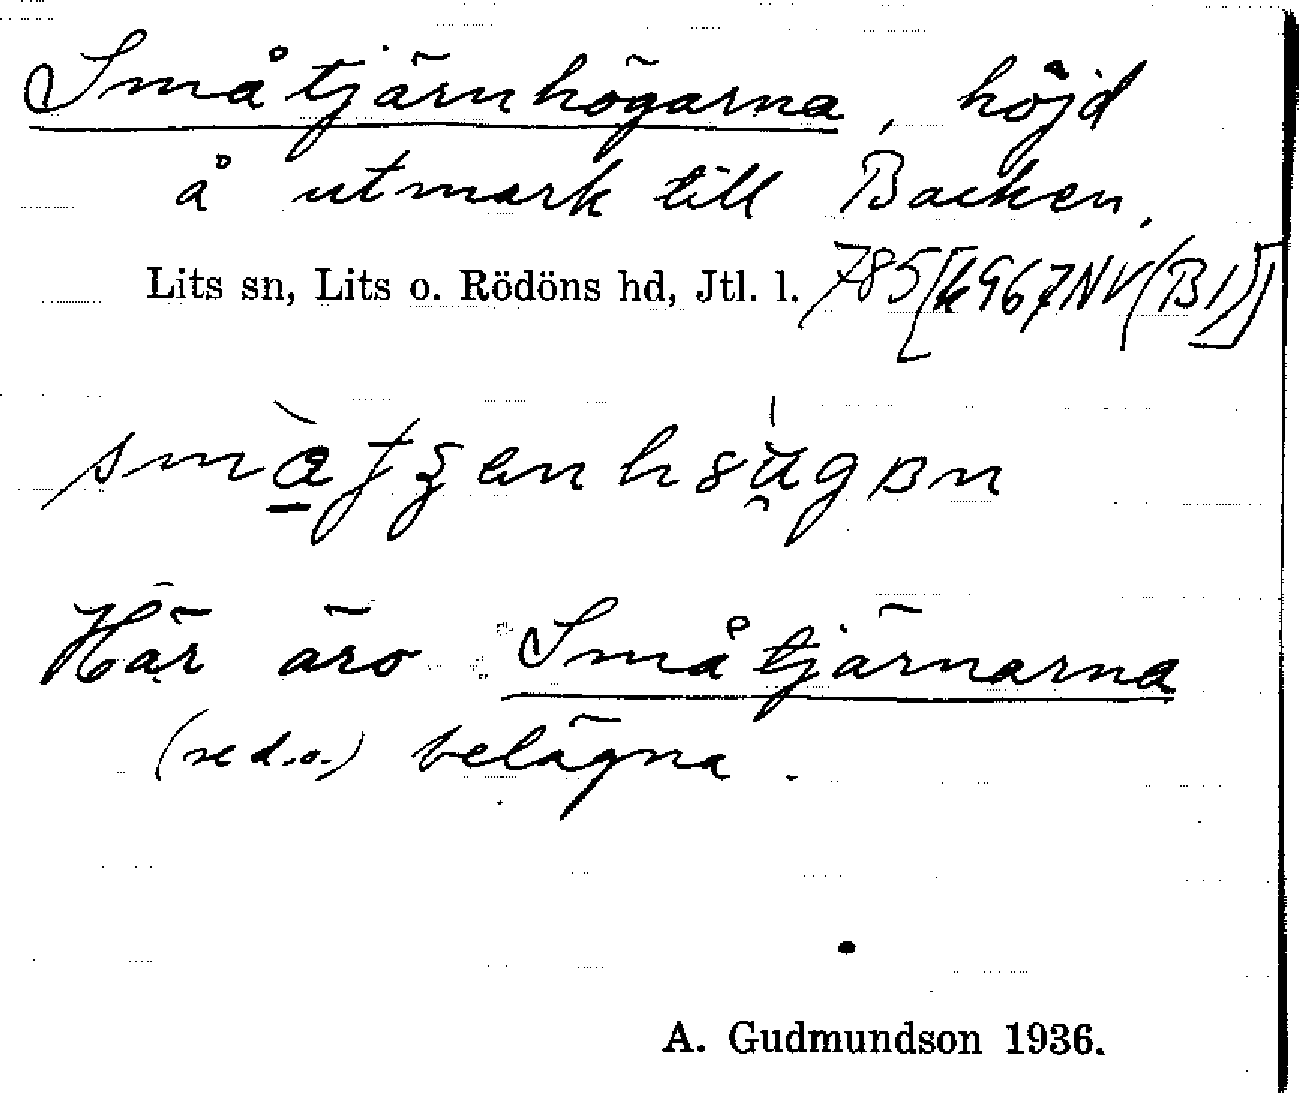 Småtjärnhögarna, höjd
å utmark till Backen.
Lits sn, Lits o. Rödöns hd, Jtl. l. 785[6967NV(B1)]
Här äro Småtjärnarna
(se d.o.) belägna.
A. Gudmundson 1936.